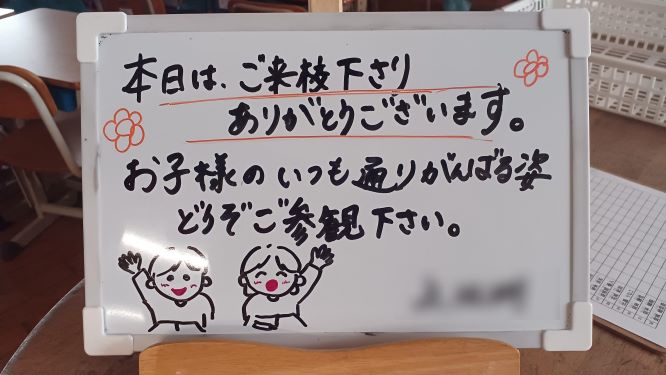 本日は、ご来校下さり
ありがとうございます。
お子様のいつも通りがんばる姿
どうぞご参観下さい。